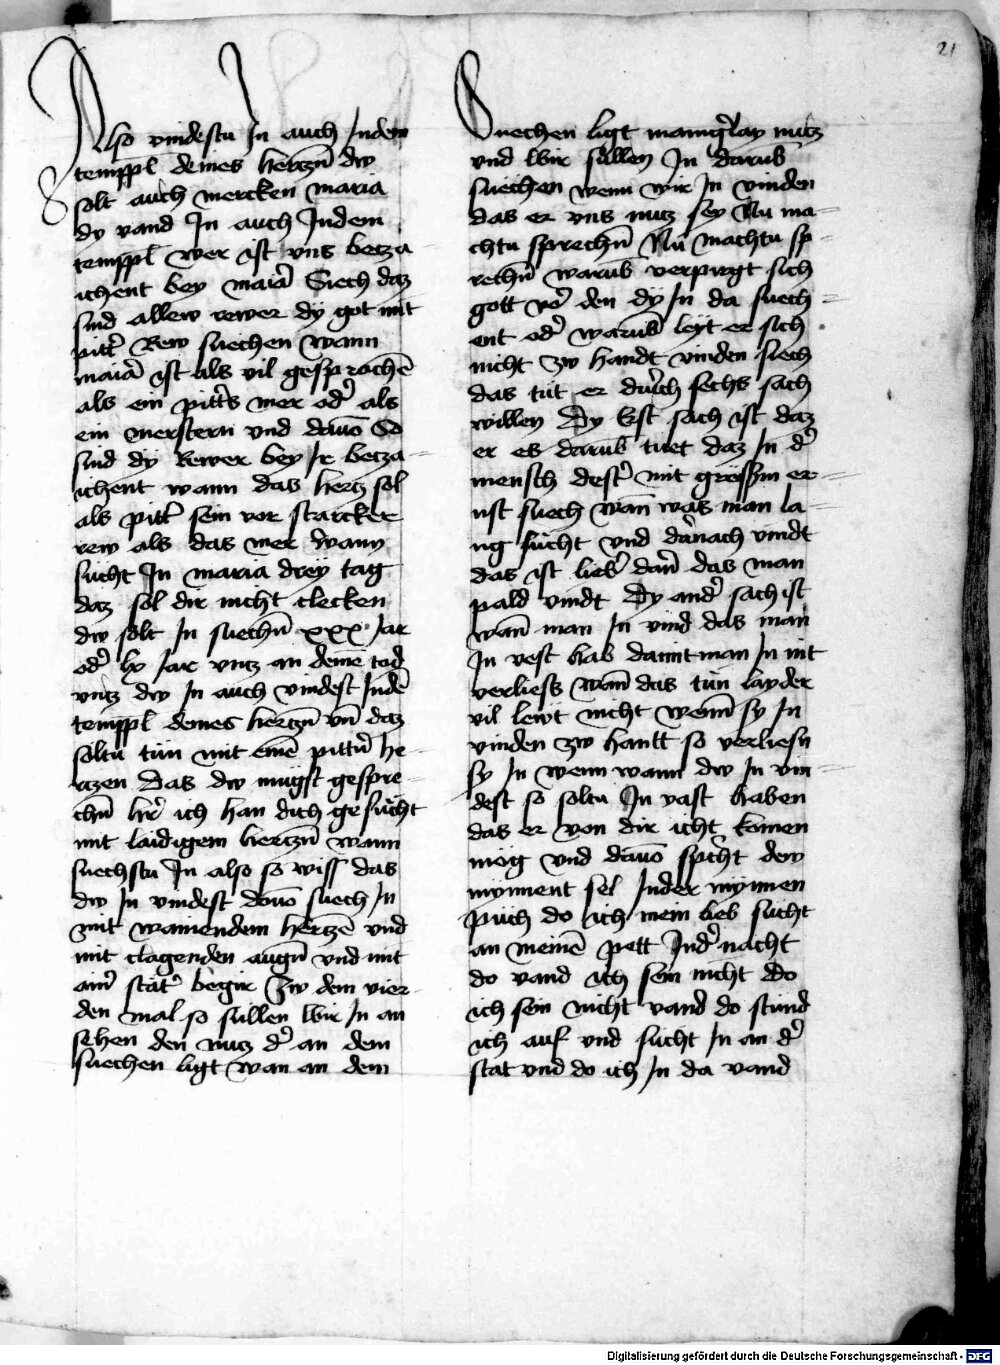 21
Also vindestu Jn auch Jndem
temppl deines hertzn̄ dw
solt auch mercken maria
dy vand Jn auch Jndem
temppl wer ist vns betza
ichent bey maia᷑ Siech daz
sind allew rewer dy got mit
pitt᷑ Rew suechen wann
maia᷑ ist als vil gesprochē
als ein pitt᷑s mer od᷑ als
ein merstern vnd dauō So
sind dy Rewer bey Jr betza
ichent wann das hertz sol
als pitt᷑ sein vor starcker
rew als das mer wann
sucht Jn maria drey tag
daz sol dir nicht clecken
dw solt Jn suechn̄ xxx Jar
od᷑ lx Jar vntz an deinē tod
vntz dw Jn auch vindest Jndē
temppl deines hertzn̄ vn̄ daz
soltu tun mit einē pittn̄ he
rtzen Das dw mugst gespre
chn̄ hr᷑ ich han dich gesucht
mit laidigem hertzn̄ wann
suechstu Jn also so wiss das
dw Jn vindest dauō suech Jn
mit wainendem hertzē vnd
mit clagenden augn̄ vnd mit
aim̄ stät᷑ begir Zw dem vier
den mal so sullen wir Jn an
sehen den nutz d᷑ an dem
suechen ligt wan an dem
Suechen ligt manig᷑lay nutz
vnd wir sullen Jn darub̄
suechen wenn wir Jn vinden
das er vns nutz sey Nu ma
chtu sprechn̄ Nu machtu sp
rechn̄ warub̄ verpirgt sich
gott vo᷑ den dy Jn da suech
ent od᷑ warub̄ leyt er sich
nicht zw handt vinden siech
das tut er durch sechs sach
willen Dy Erst sach ist daz
er es darub̄ tuet daz Jn d᷑
mensch dest᷑ mit grössm er
nst suech wan̄ was man la
ng sucht vnd darnach vindt
das ist lieb᷑ dan̄ das man
pald vindt Dy and᷑ sach ist
wan̄ man Jn vind das man
Jn vest hab damit man Jn nit
verliess wan̄ das tun layder
vil lewt nicht wenn̄ sy Jn
vinden zw hantt so verliesn
sy Jn wenn wann dw Jn vin
dest so soltu Jn vast haben
das er von dir icht komen
mög vnd dauō spricht dew
mynnent sel Jnder mynnen
puch do ich mein lieb sucht
an meinē pett Jnd᷑ nacht
do vand ich sein nicht Do
ich sein nicht vand do stund
ich auf vnd sucht Jn an d᷑
stat vnd do ich Jn da vand
Digitalisierung gefördert durch die Deutsche Forschungsgemeinschaft - DFG